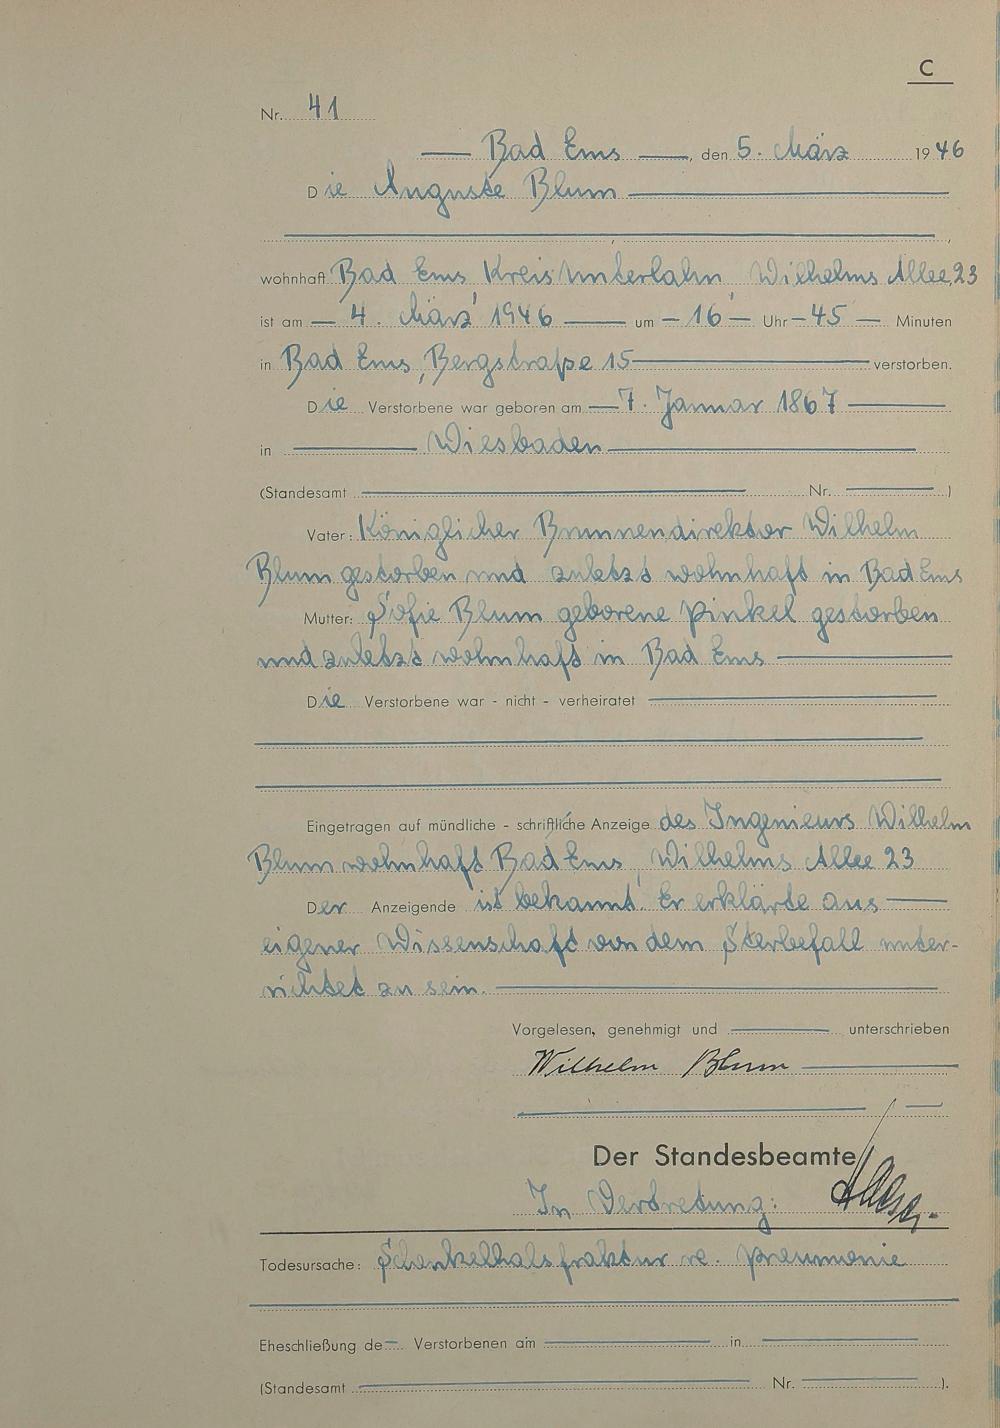 C
Nr. 41
Bad Ems, den 5. März 1946
Die Auguste Blum
wohnhaft Bad Ems, Kreis Unterlahn, Wilhelms Allee 23
ist am 4. März 1946 um 16 Uhr 45 Minuten
in Bad Ems, Bergstraße 15 verstorben.
Die Verstorbene war geboren am 7. Januar 1867
in Wiesbaden
(Standesamt Nr. )
Vater: Königlicher Brunnendirektor Wilhelm
Blum gestorben und zuletzt wohnhaft in Bad Ems
Mutter: Sofie Blum geborene Pinkel gestorben
und zuletzt wohnhaft in Bad Ems
Die Verstorbene war - nicht - verheiratet
Eingetragen auf mündliche - schriftliche Anzeige des Ingenieurs Wilhelm
Blum wohnhaft Bad Ems, Wilhelms Allee 23
Der Anzeigende ist bekannt. Er erklärte aus
eigener Wissenschaft von dem Sterbefall unter-
richtet zu sein.
Vorgelesen, genehmigt und unterschrieben
Wilhelm Blum
Der Standesbeamte
In Vertretung:
Todesursache: Schenkelhalsfraktur re. Pneumonie
Eheschließung de Verstorbenen am in
(Standesamt Nr. ).